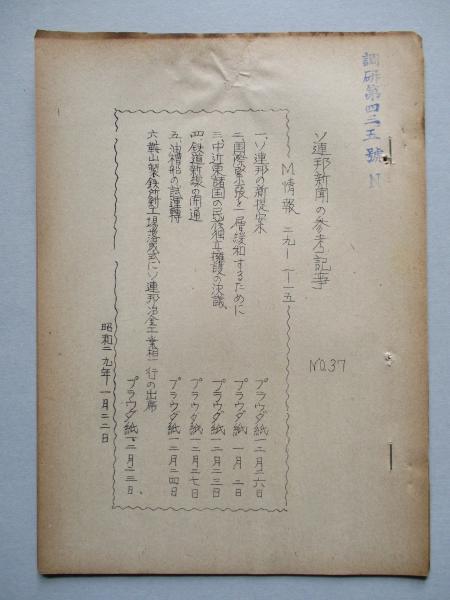 調研第四三五號 N
ソ連邦新聞の参考記事
No.37
M情報 二九-一-一五
一、ソ連邦の新提案 プラウダ紙一二月二六日
二、国際緊張を一層緩和するために プラウダ紙一月二日
三、中近東諸国の民族独立擁護の決議、 プラウダ紙一二月二三日
四、鉄道新線の開通 プラウダ紙一二月二七日
五、油槽船の試運轉 プラウダ紙一二月二四日
六、鞍山製鉄所新工場落成式にソ連邦冶金工業相一行の出席 プラウダ紙、一二月二三日、
昭和二九年一月二二日